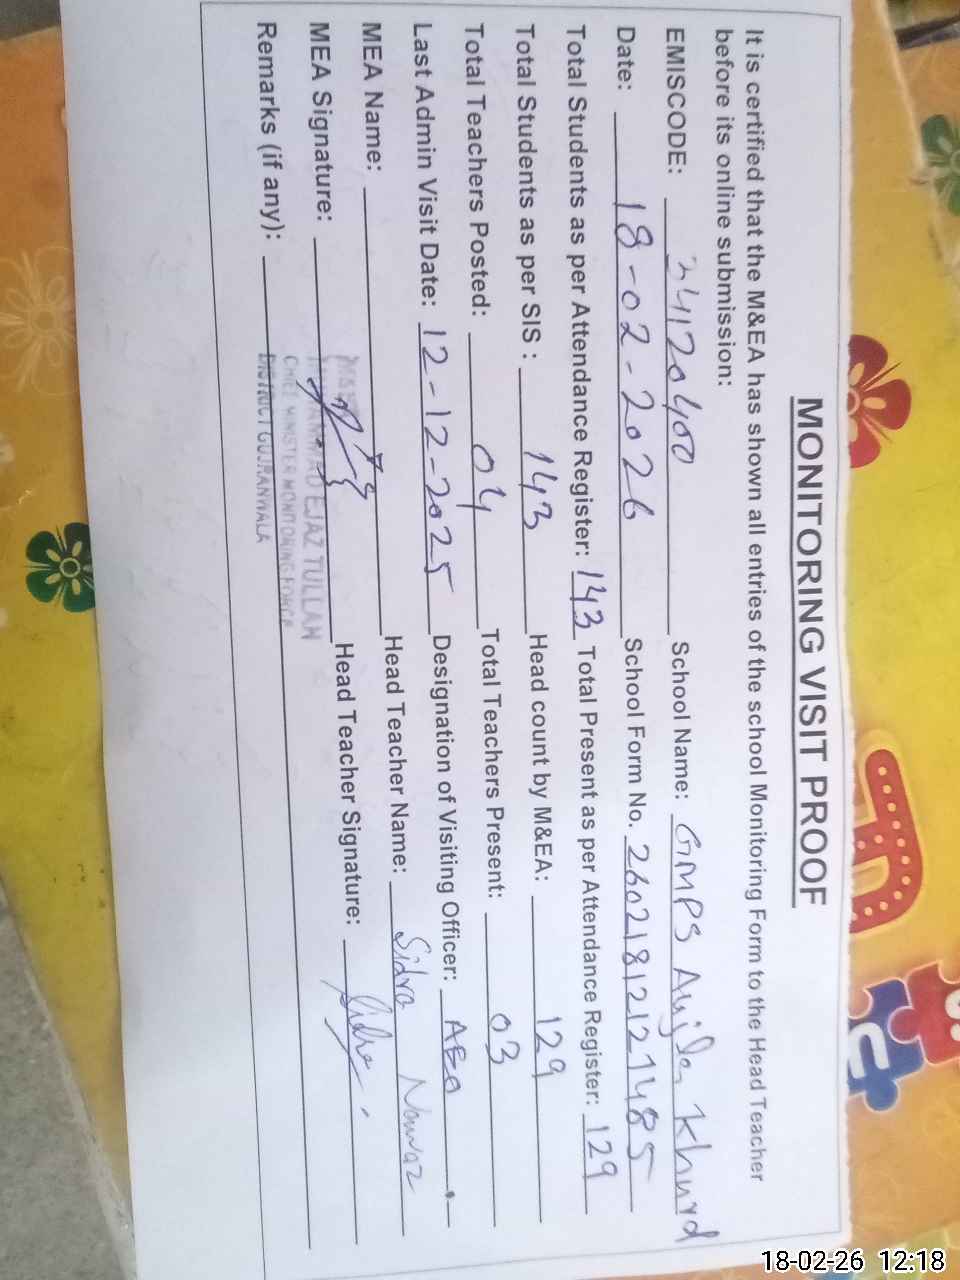 MONITORING VISIT PROOF
It is certified that the M&EA has shown all entries of the school Monitoring Form to the Head Teacher
before its online submission:
EMISCODE: 34120400 School Name: GMPS Aujla Khurd
Date: 18-02-2026 School Form No. 260218121271485
Total Students as per Attendance Register: 143 Total Present as per Attendance Register: 129
Total Students as per SIS : 143 Head count by M&EA: 129
Total Teachers Posted: 04 Total Teachers Present: 03
Last Admin Visit Date: 12-12-2025 Designation of Visiting Officer: AEO
MEA Name: Head Teacher Name: Sidra Nawaz
MEA Signature: Head Teacher Signature: Sidra
EJAZ TULLAH
CHIEF MINISTER MONITORING FORCE
DISTRICT GUJRANWALA
Remarks (if any):
18-02-26 12:18